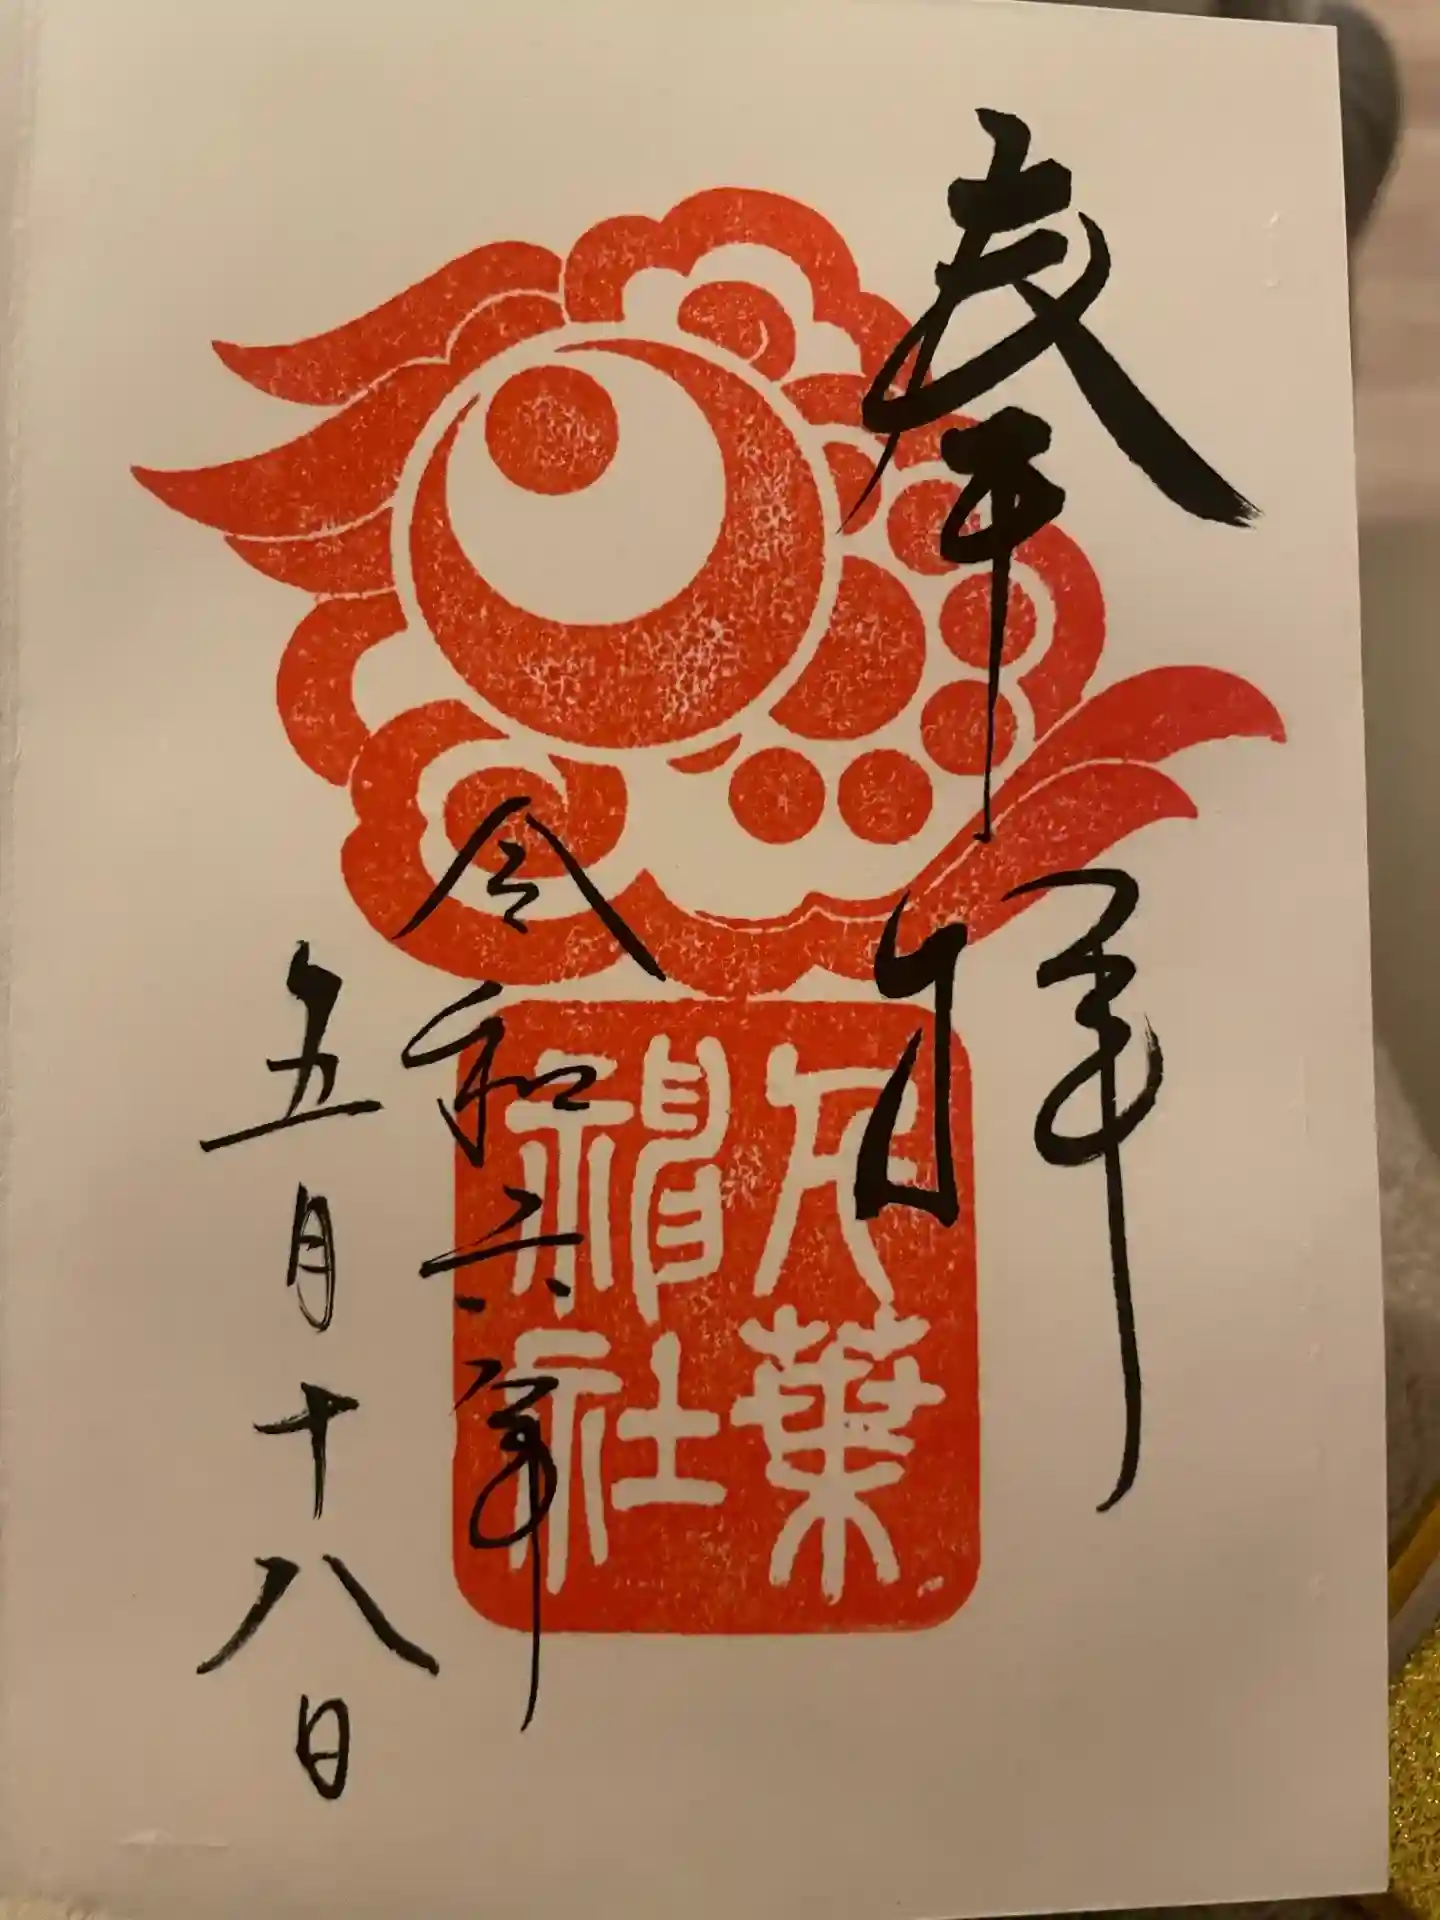 奉拝
葉
社
令和六年
五月十八日